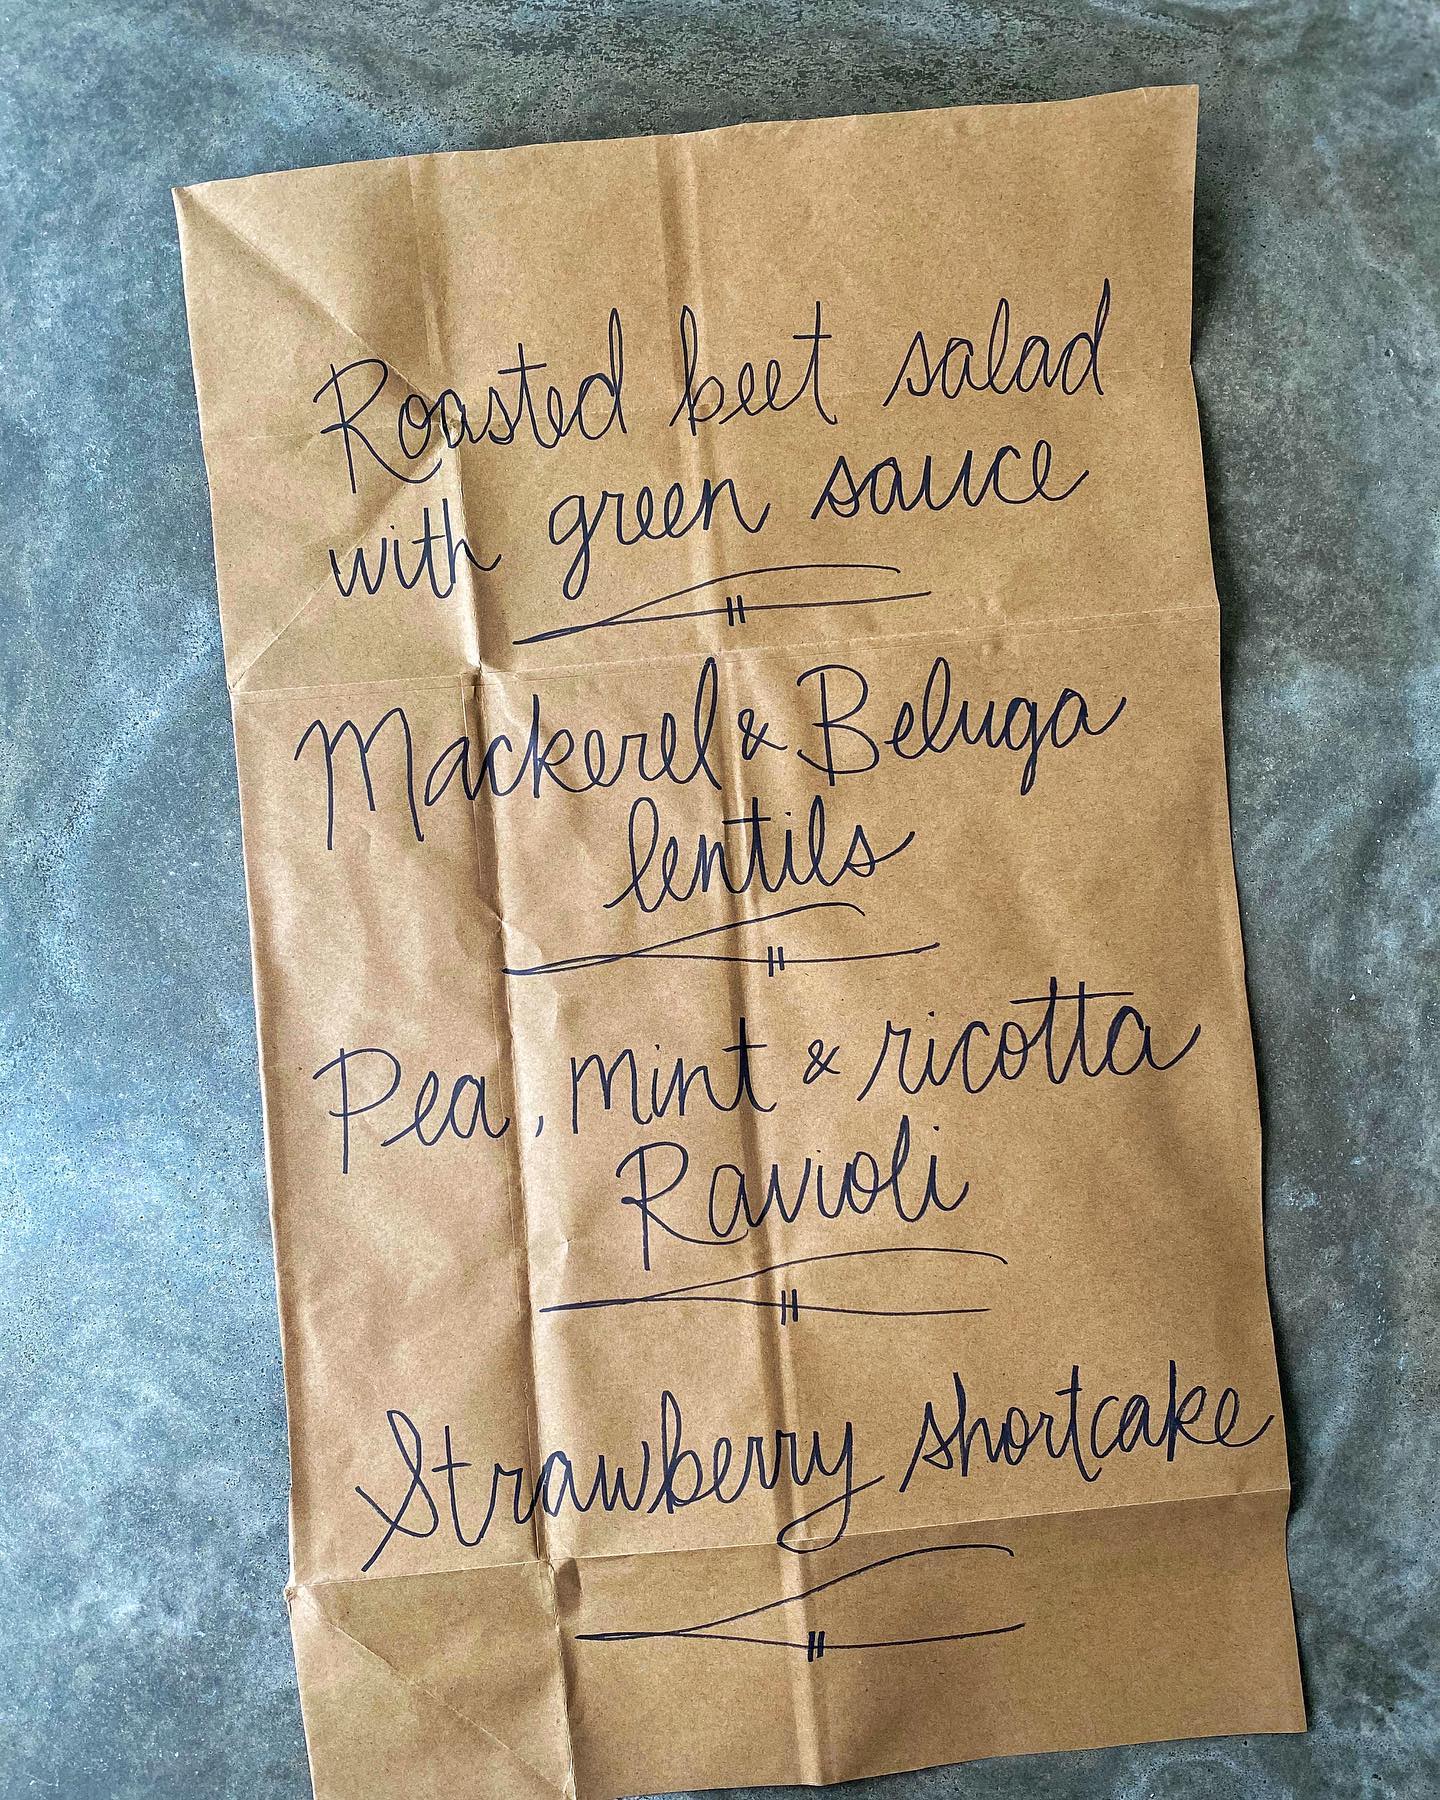 Roasted beet salad
with green sauce
Mackerel & Beluga
lentils
Pea, mint & ricotta
Ravioli
Strawberry shortcake